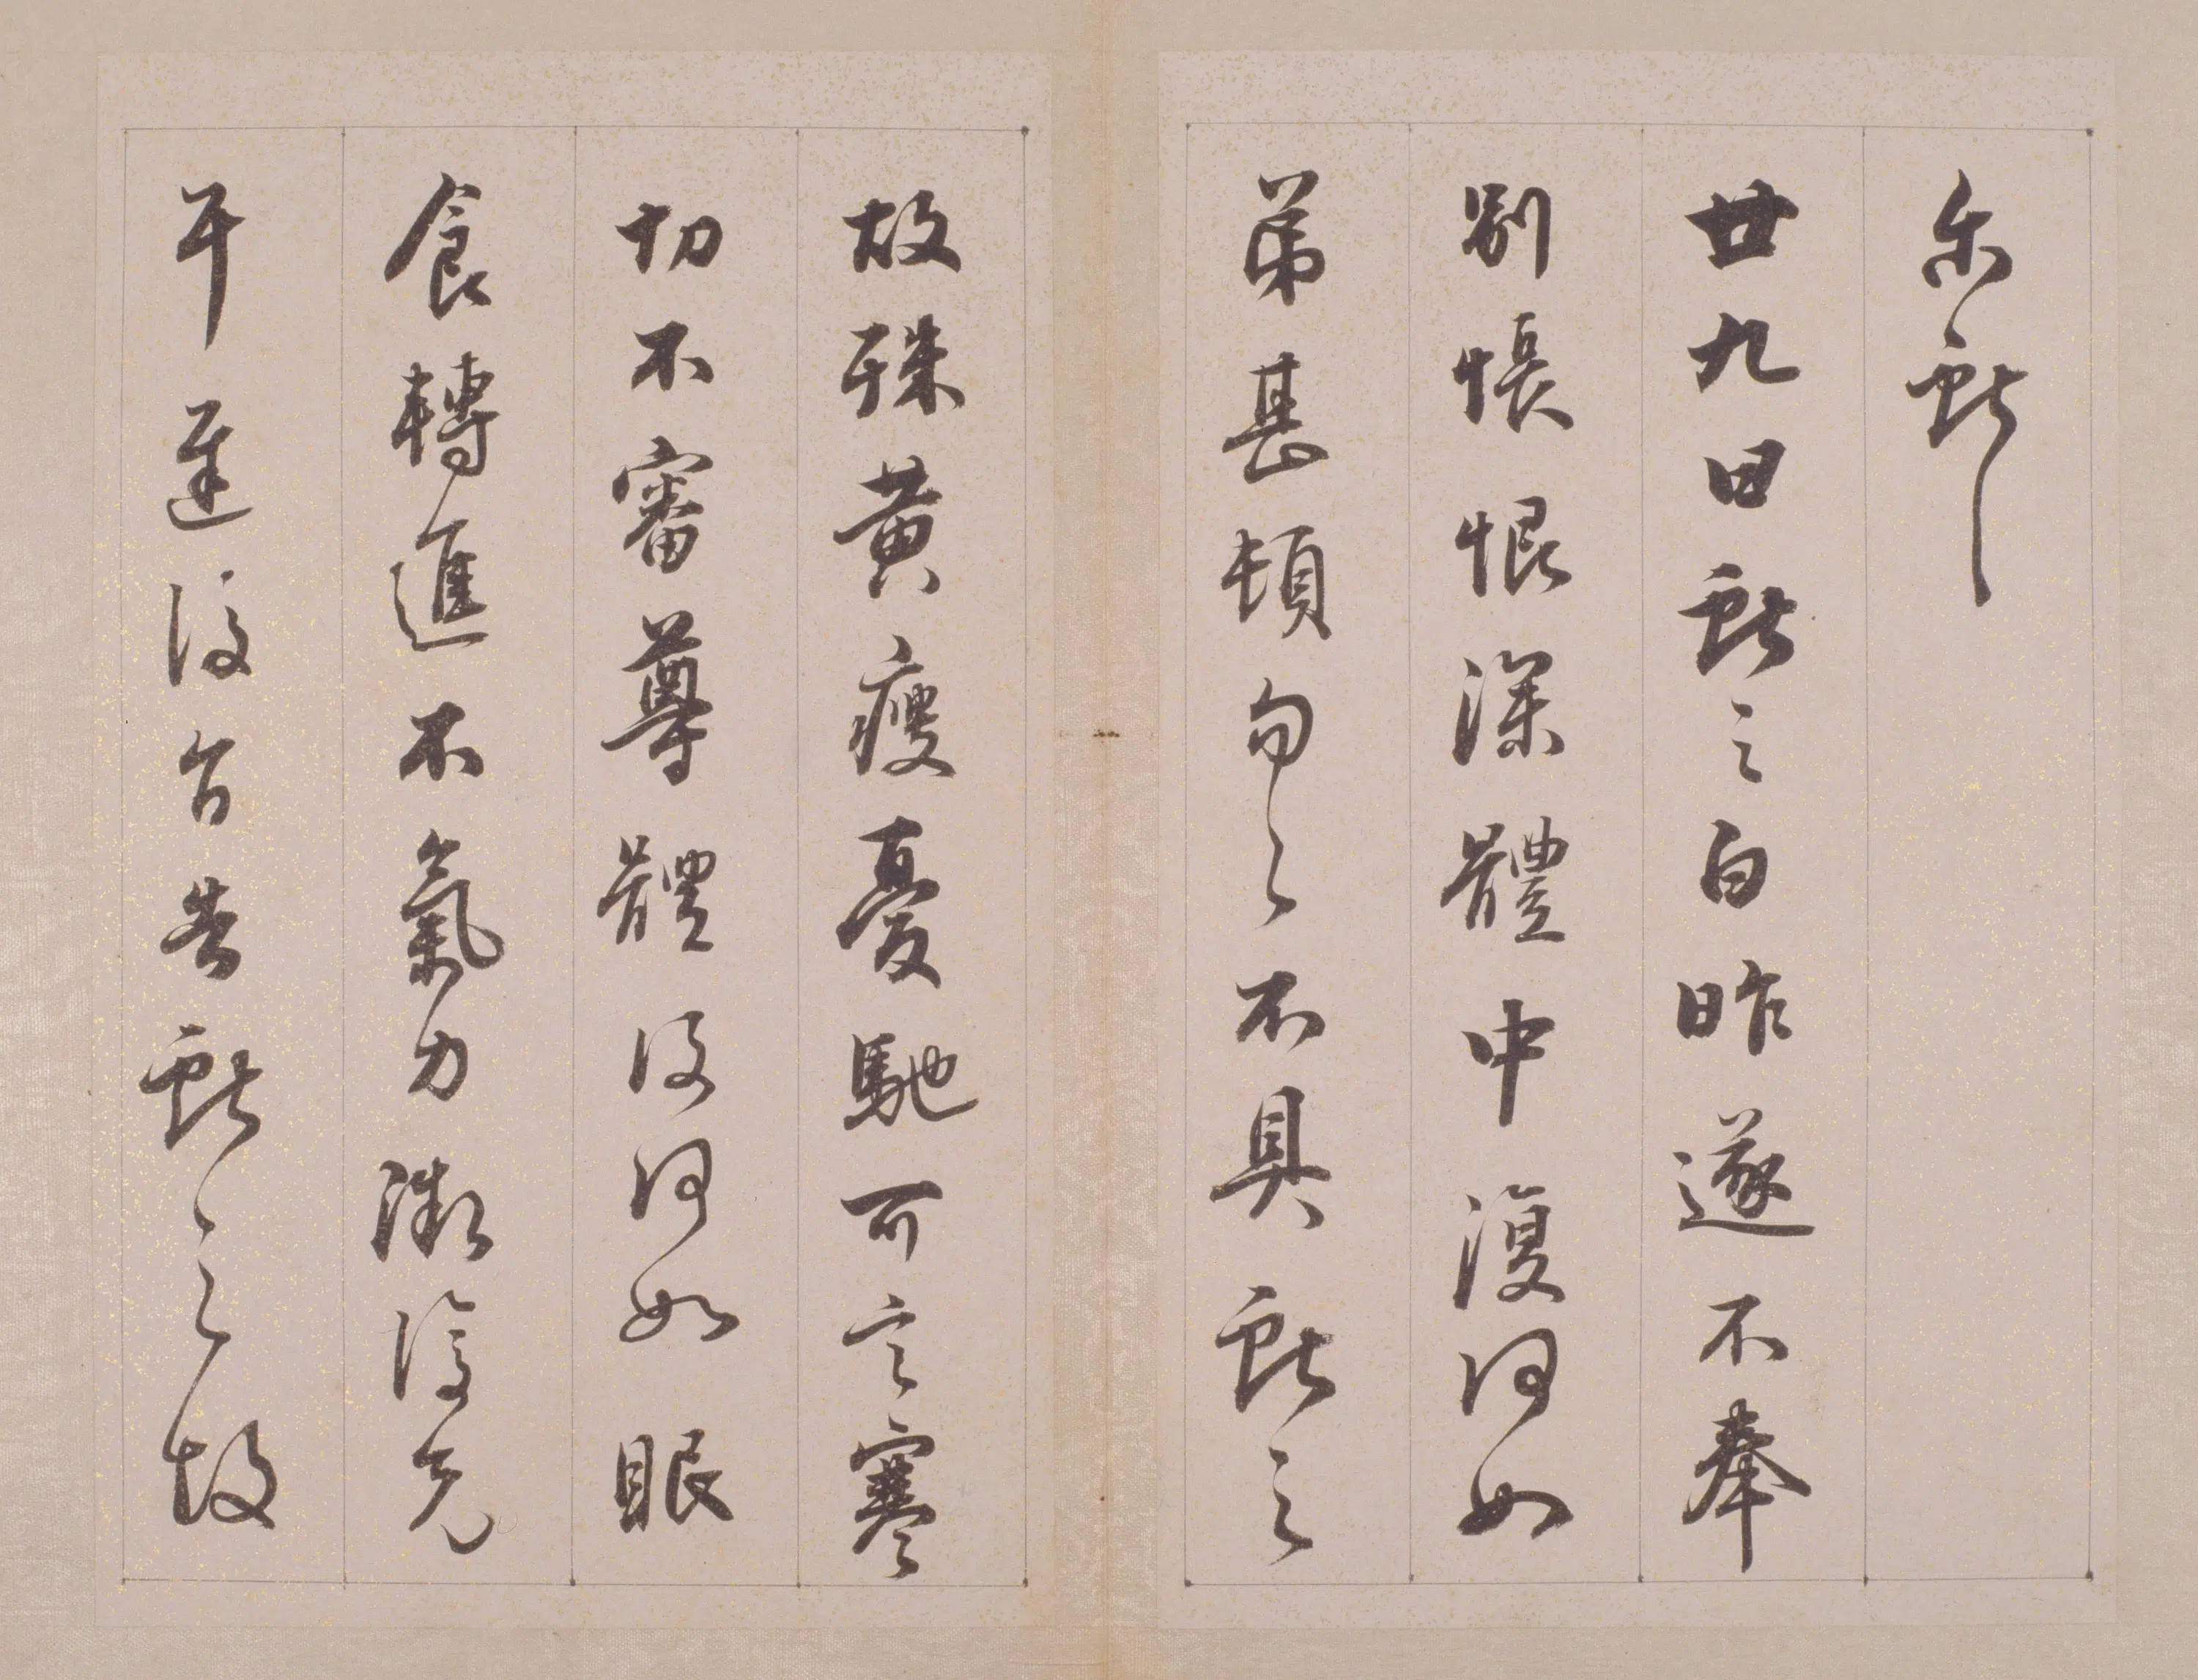 尒獻之
廿九日獻之白昨遂不奉
別悵恨深體中復何如
弟甚頓匆匆不具獻之
故殊黃瘦憂馳可言寒
切不審尊體復何如眼
食轉進不氣力漸復充
耳遲復旨告獻之故